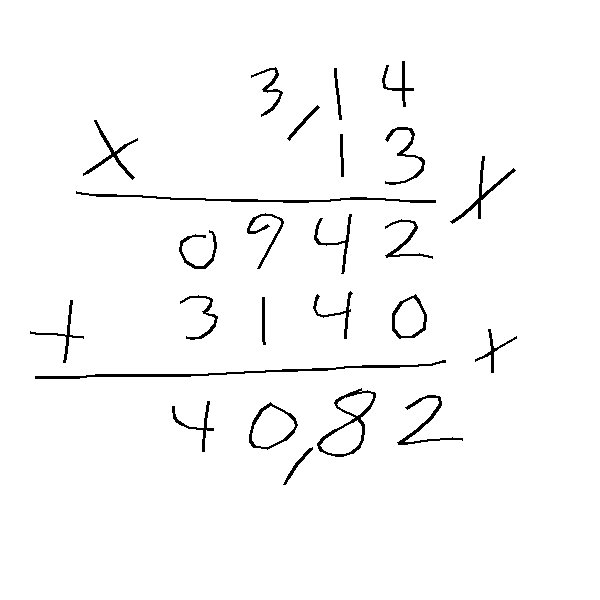 3,14
x 13 x
0942
+ 3140 +
40,82